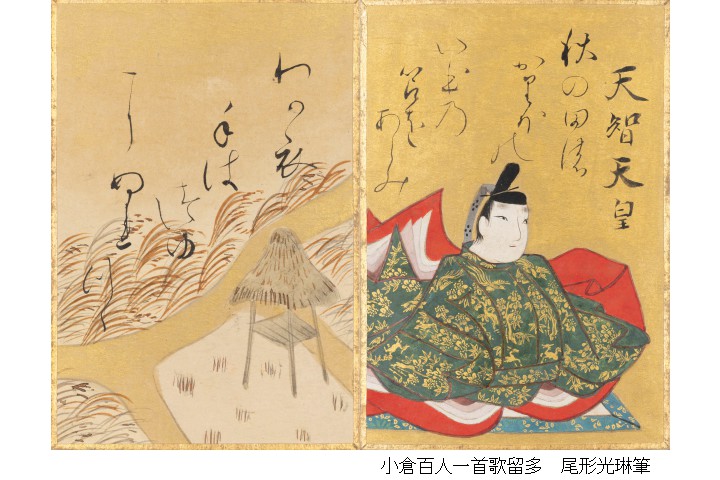 天智天皇
秋の田濃
かりほの
いほ乃
苫を
あらみ
わか衣
手は
つゆ
に
ぬれ
つゝ
小倉百人一首歌留多　尾形光琳筆